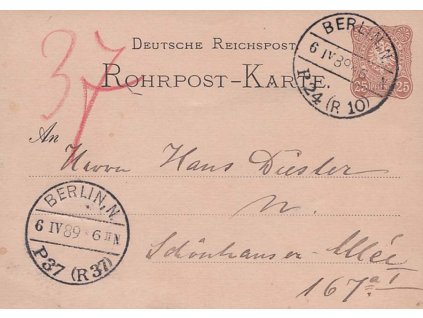 37
DEUTSCHE REICHSPOST
ROHRPOST-KARTE.
BERLIN, N.
6 IV 89
P.24 (R 10)
25 25
An
Herrn Hans Diester
N.
Schönhauser-Allée
167a I
BERLIN, N.
6 IV 89 6 N
P37 (R 37)